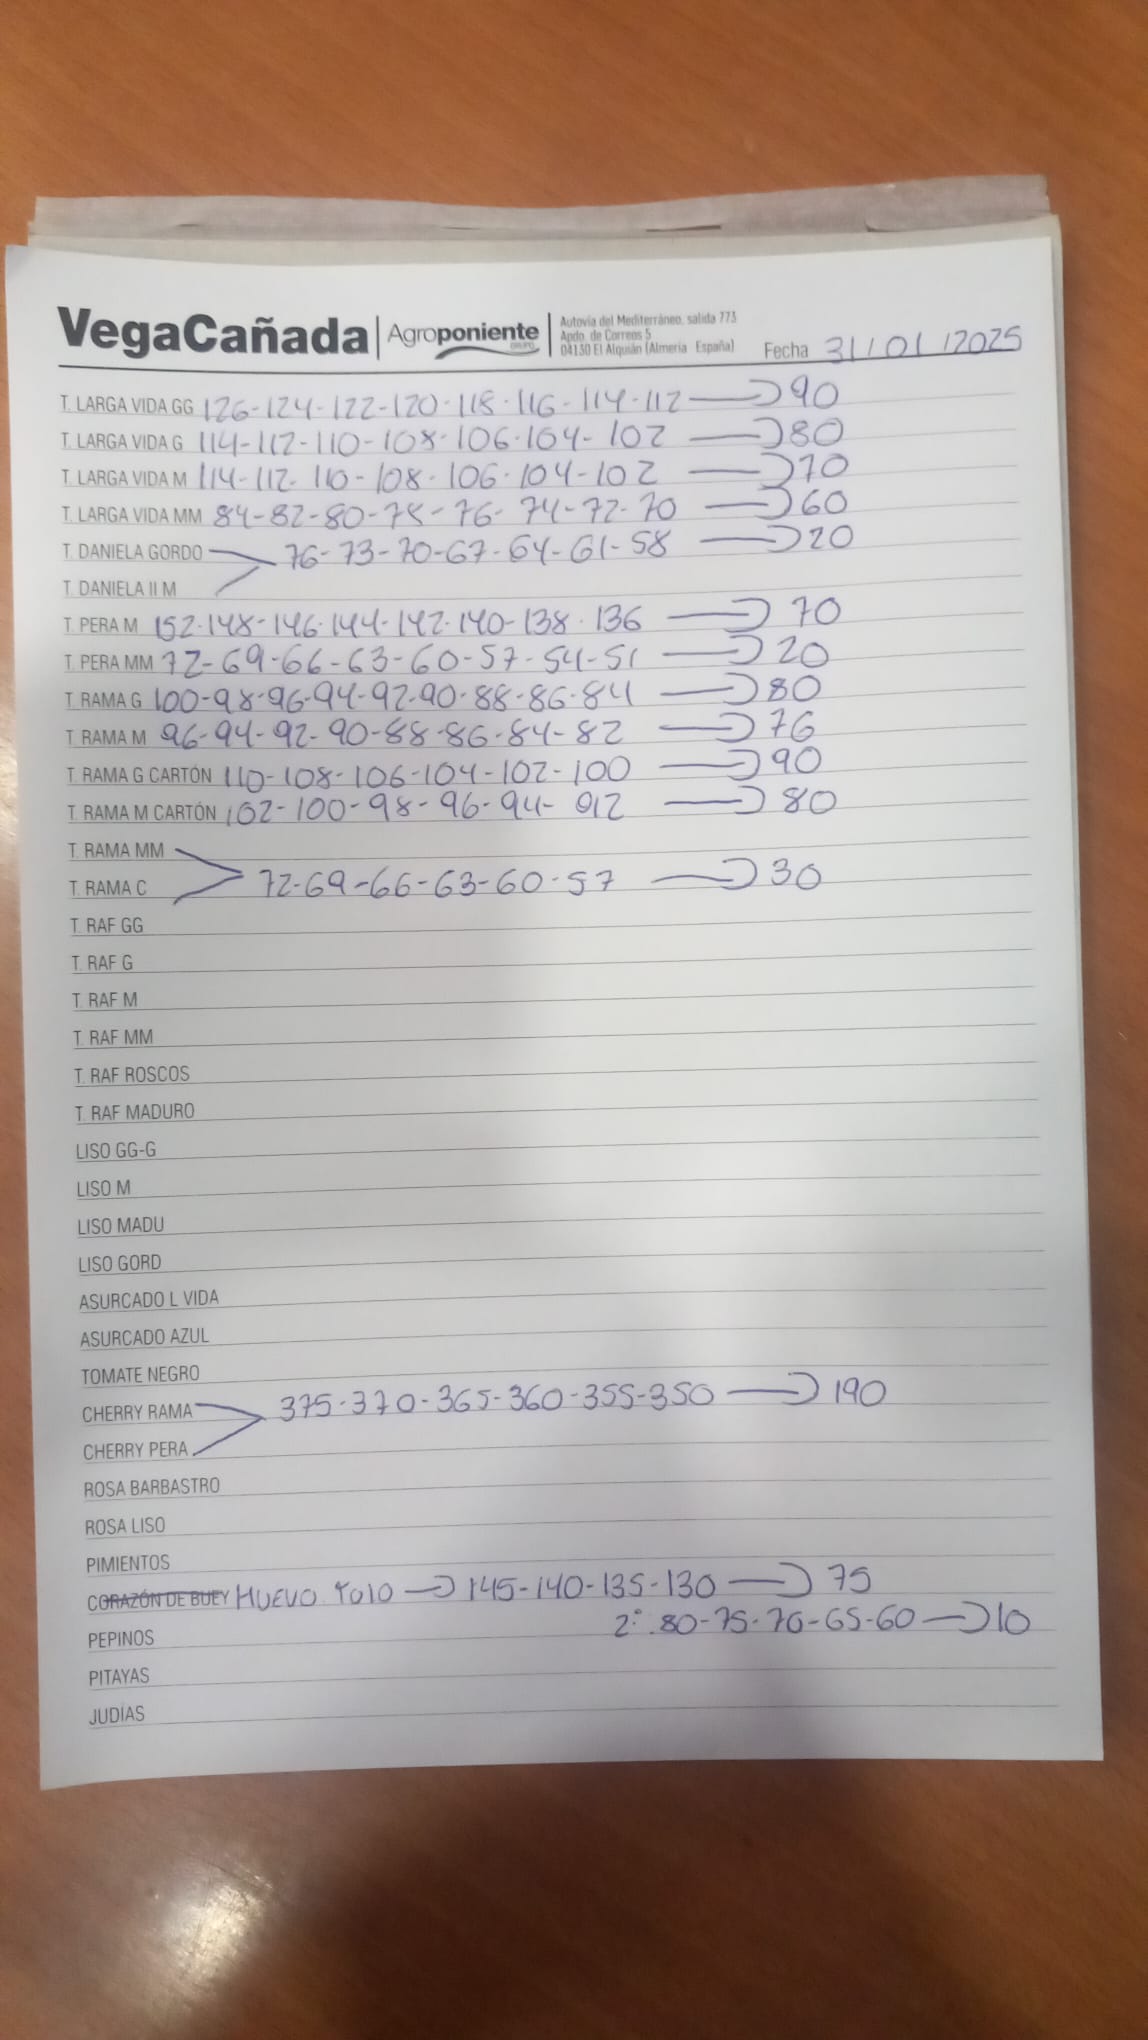 VegaCañada | Agroponiente GRUPO
Autovía del Mediterráneo, salida 773
Apdo. de Correos 5
04130 El Alquián (Almería España)
Fecha 31/01/2025
T. LARGA VIDA GG 126-124-122-120-118-116-114-112 → 90
T. LARGA VIDA G 114-112-110-108-106-104-102 → 80
T. LARGA VIDA M 114-112-110-108-106-104-102 → 70
T. LARGA VIDA MM 84-82-80-78-76-74-72-70 → 60
T. DANIELA GORDO 76-73-70-67-64-61-58 → 20
T. DANIELA II M
T. PERA M 152-148-146-144-142-140-138-136 → 70
T. PERA MM 72-69-66-63-60-57-54-51 → 20
T. RAMA G 100-98-96-94-92-90-88-86-84 → 80
T. RAMA M 96-94-92-90-88-86-84-82 → 76
T. RAMA G CARTÓN 110-108-106-104-102-100 → 90
T. RAMA M CARTÓN 102-100-98-96-94-92 → 80
T. RAMA MM
T. RAMA C 72-69-66-63-60-57 → 30
T. RAF GG
T. RAF G
T. RAF M
T. RAF MM
T. RAF ROSCOS
T. RAF MADURO
LISO GG-G
LISO M
LISO MADU
LISO GORD
ASURCADO L VIDA
ASURCADO AZUL
TOMATE NEGRO
CHERRY RAMA 375-370-365-360-355-350 → 190
CHERRY PERA
ROSA BARBASTRO
ROSA LISO
PIMIENTOS
CORAZÓN DE BUEY HUEVO TOIO → 145-140-135-130 → 75
PEPINOS 2º. 80-75-70-65-60 → 10
PITAYAS
JUDÍAS